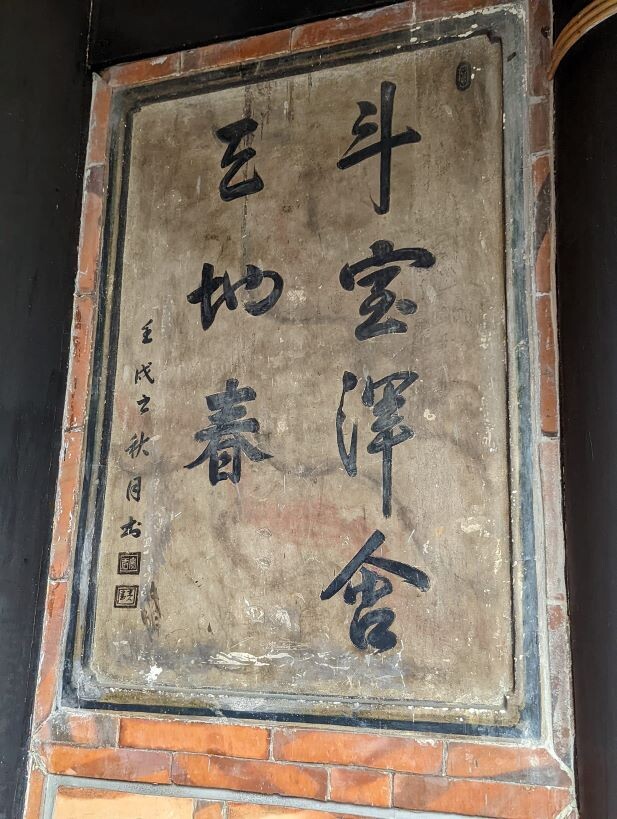 斗室渾含
天地春
壬戌之秋月